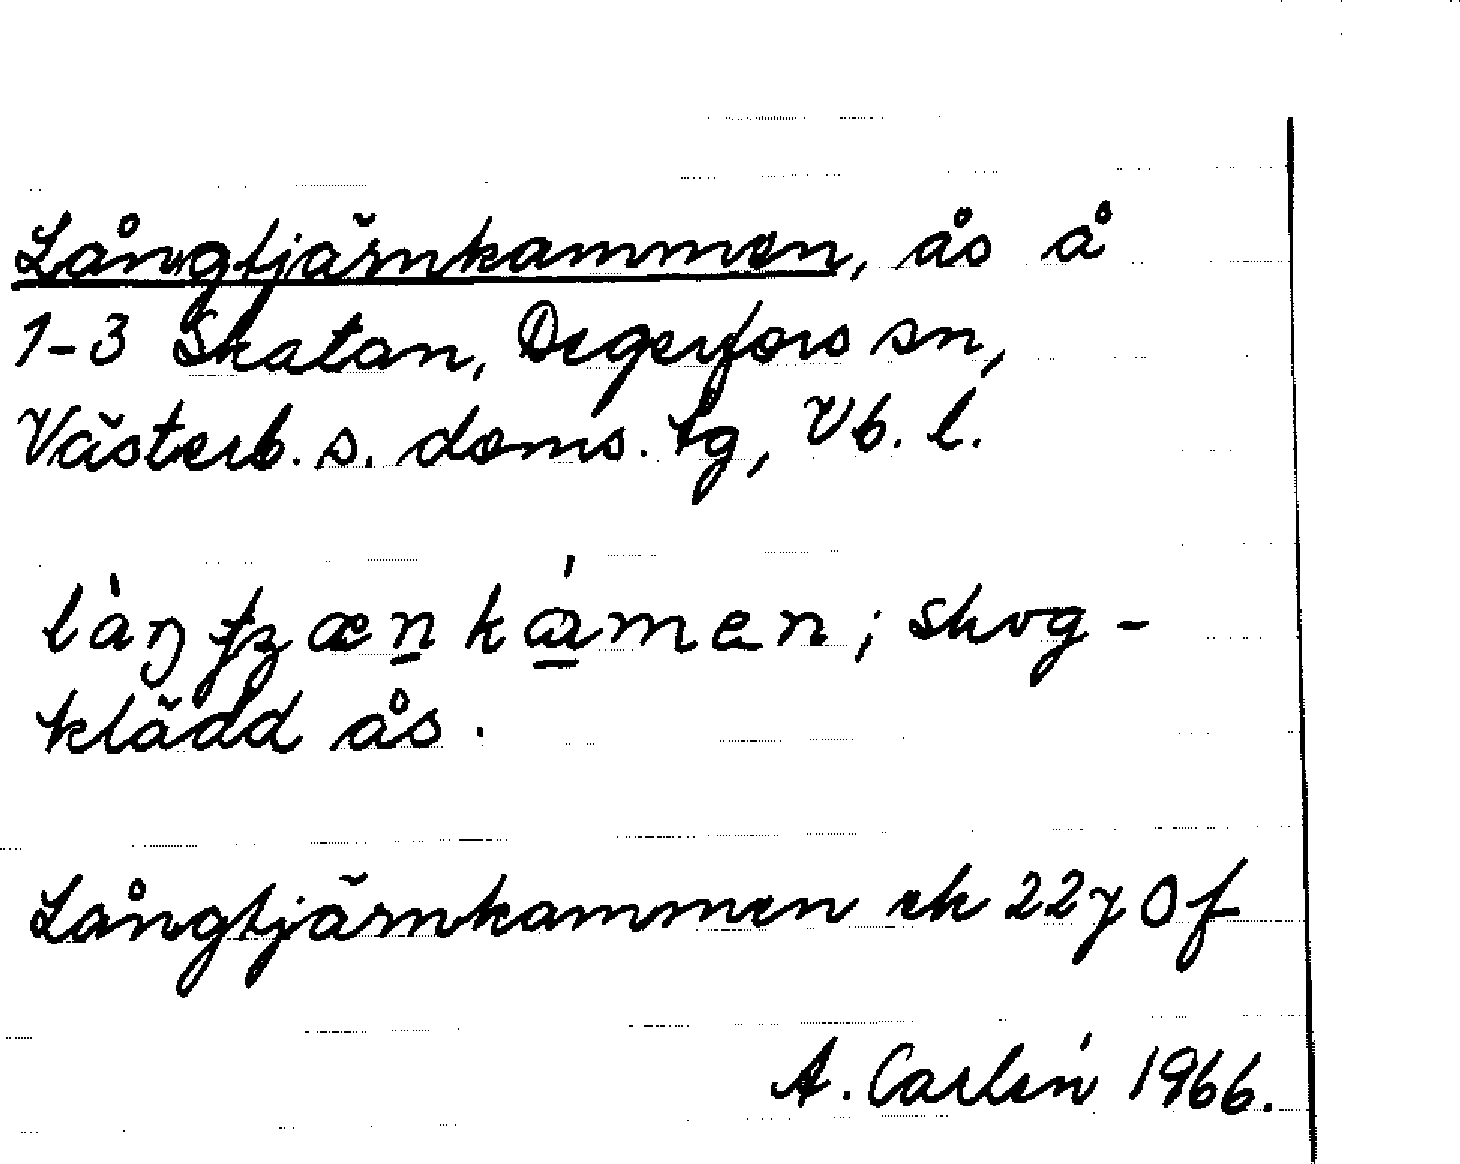 Långtjärnkammen, ås å
1-3 Skatan, Degerfors sn,
Västerb. s. doms. tg, Vb. l.
skog-
klädd ås.
Långtjärnkammen ek 22y 0f
A. Carlén 1966.